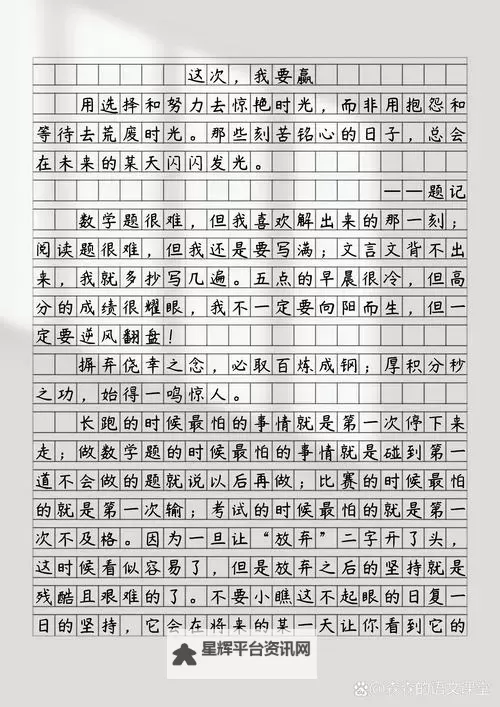 这次，我要赢
用选择和努力去惊艳时光，而非用抱怨和
等待去荒废时光。那些刻苦铭心的日子，总会
在未来的某天闪闪发光。
——题记
数学题很难，但我喜欢解出来的那一刻；
阅读题很难，但我还是要写满；文言文背不出
来，我就多抄写几遍。五点的早晨很冷，但高
分的成绩很耀眼，我不一定要向阳而生，但一
定要逆风翻盘！
摒弃侥幸之念，必取百炼成钢；厚积分秒
之功，始得一鸣惊人。
长跑的时候最怕的事情就是第一次停下来
走；做数学题的时候最怕的事情就是碰到第一
道不会做的题就说以后再做；比赛的时候最怕
的就是第一次输；考试的时候最怕的就是第一
次不及格。因为一旦让“放弃”二字开了头，
这时候看似容易了，但是放弃之后的坚持就是
残酷且艰难的了。不要小瞧这不起眼的日复一
日的坚持，它会在将来的某一天让你看到它的
星辉平台资讯网
森森的语文课堂